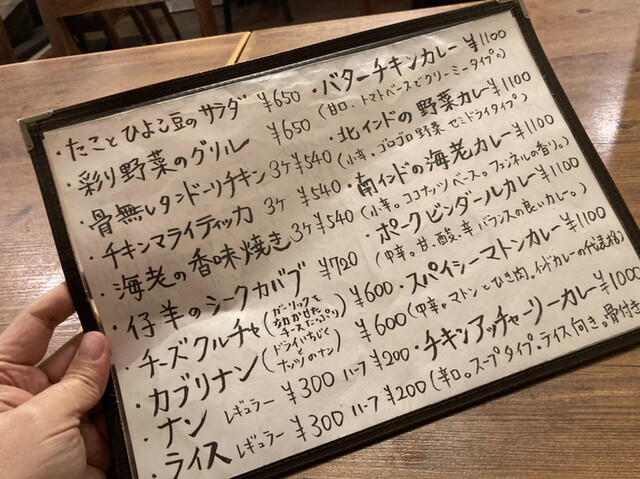 ・たことひよこ豆のサラダ ¥650
・彩り野菜のグリル ¥650
・骨無しタンドーリチキン 3ケ ¥540
・チキンマライティッカ 3ケ ¥540
・海老の香味焼き 3ケ ¥540
・仔羊のシークカバブ ¥720
・チーズクルチャ (ガーリックを効かせたチーズたっぷり) ¥600
・カブリナン (ドライいちじくとナッツのナン) ¥600
・ナン レギュラー ¥300 ハーフ ¥200
・ライス レギュラー ¥300 ハーフ ¥200
・バターチキンカレー ¥1100
(甘口。トマトベースでクリーミータイプ。)
・北インドの野菜カレー ¥1100
(小辛。ゴロゴロ野菜 セミドライタイプ)
・南インドの海老カレー ¥1100
(小辛。ココナッツベース。フェンネルの香り。)
・ポークビンダールカレー ¥1100
(中辛。甘、酸、辛 バランスの良いカレー。)
・スパイシーマトンカレー ¥1100
(中辛。マトンとひき肉。インドカレーの代表格)
・チキンアッチャーリーカレー ¥1000
(辛口。スープタイプ。ライス向き。骨付き